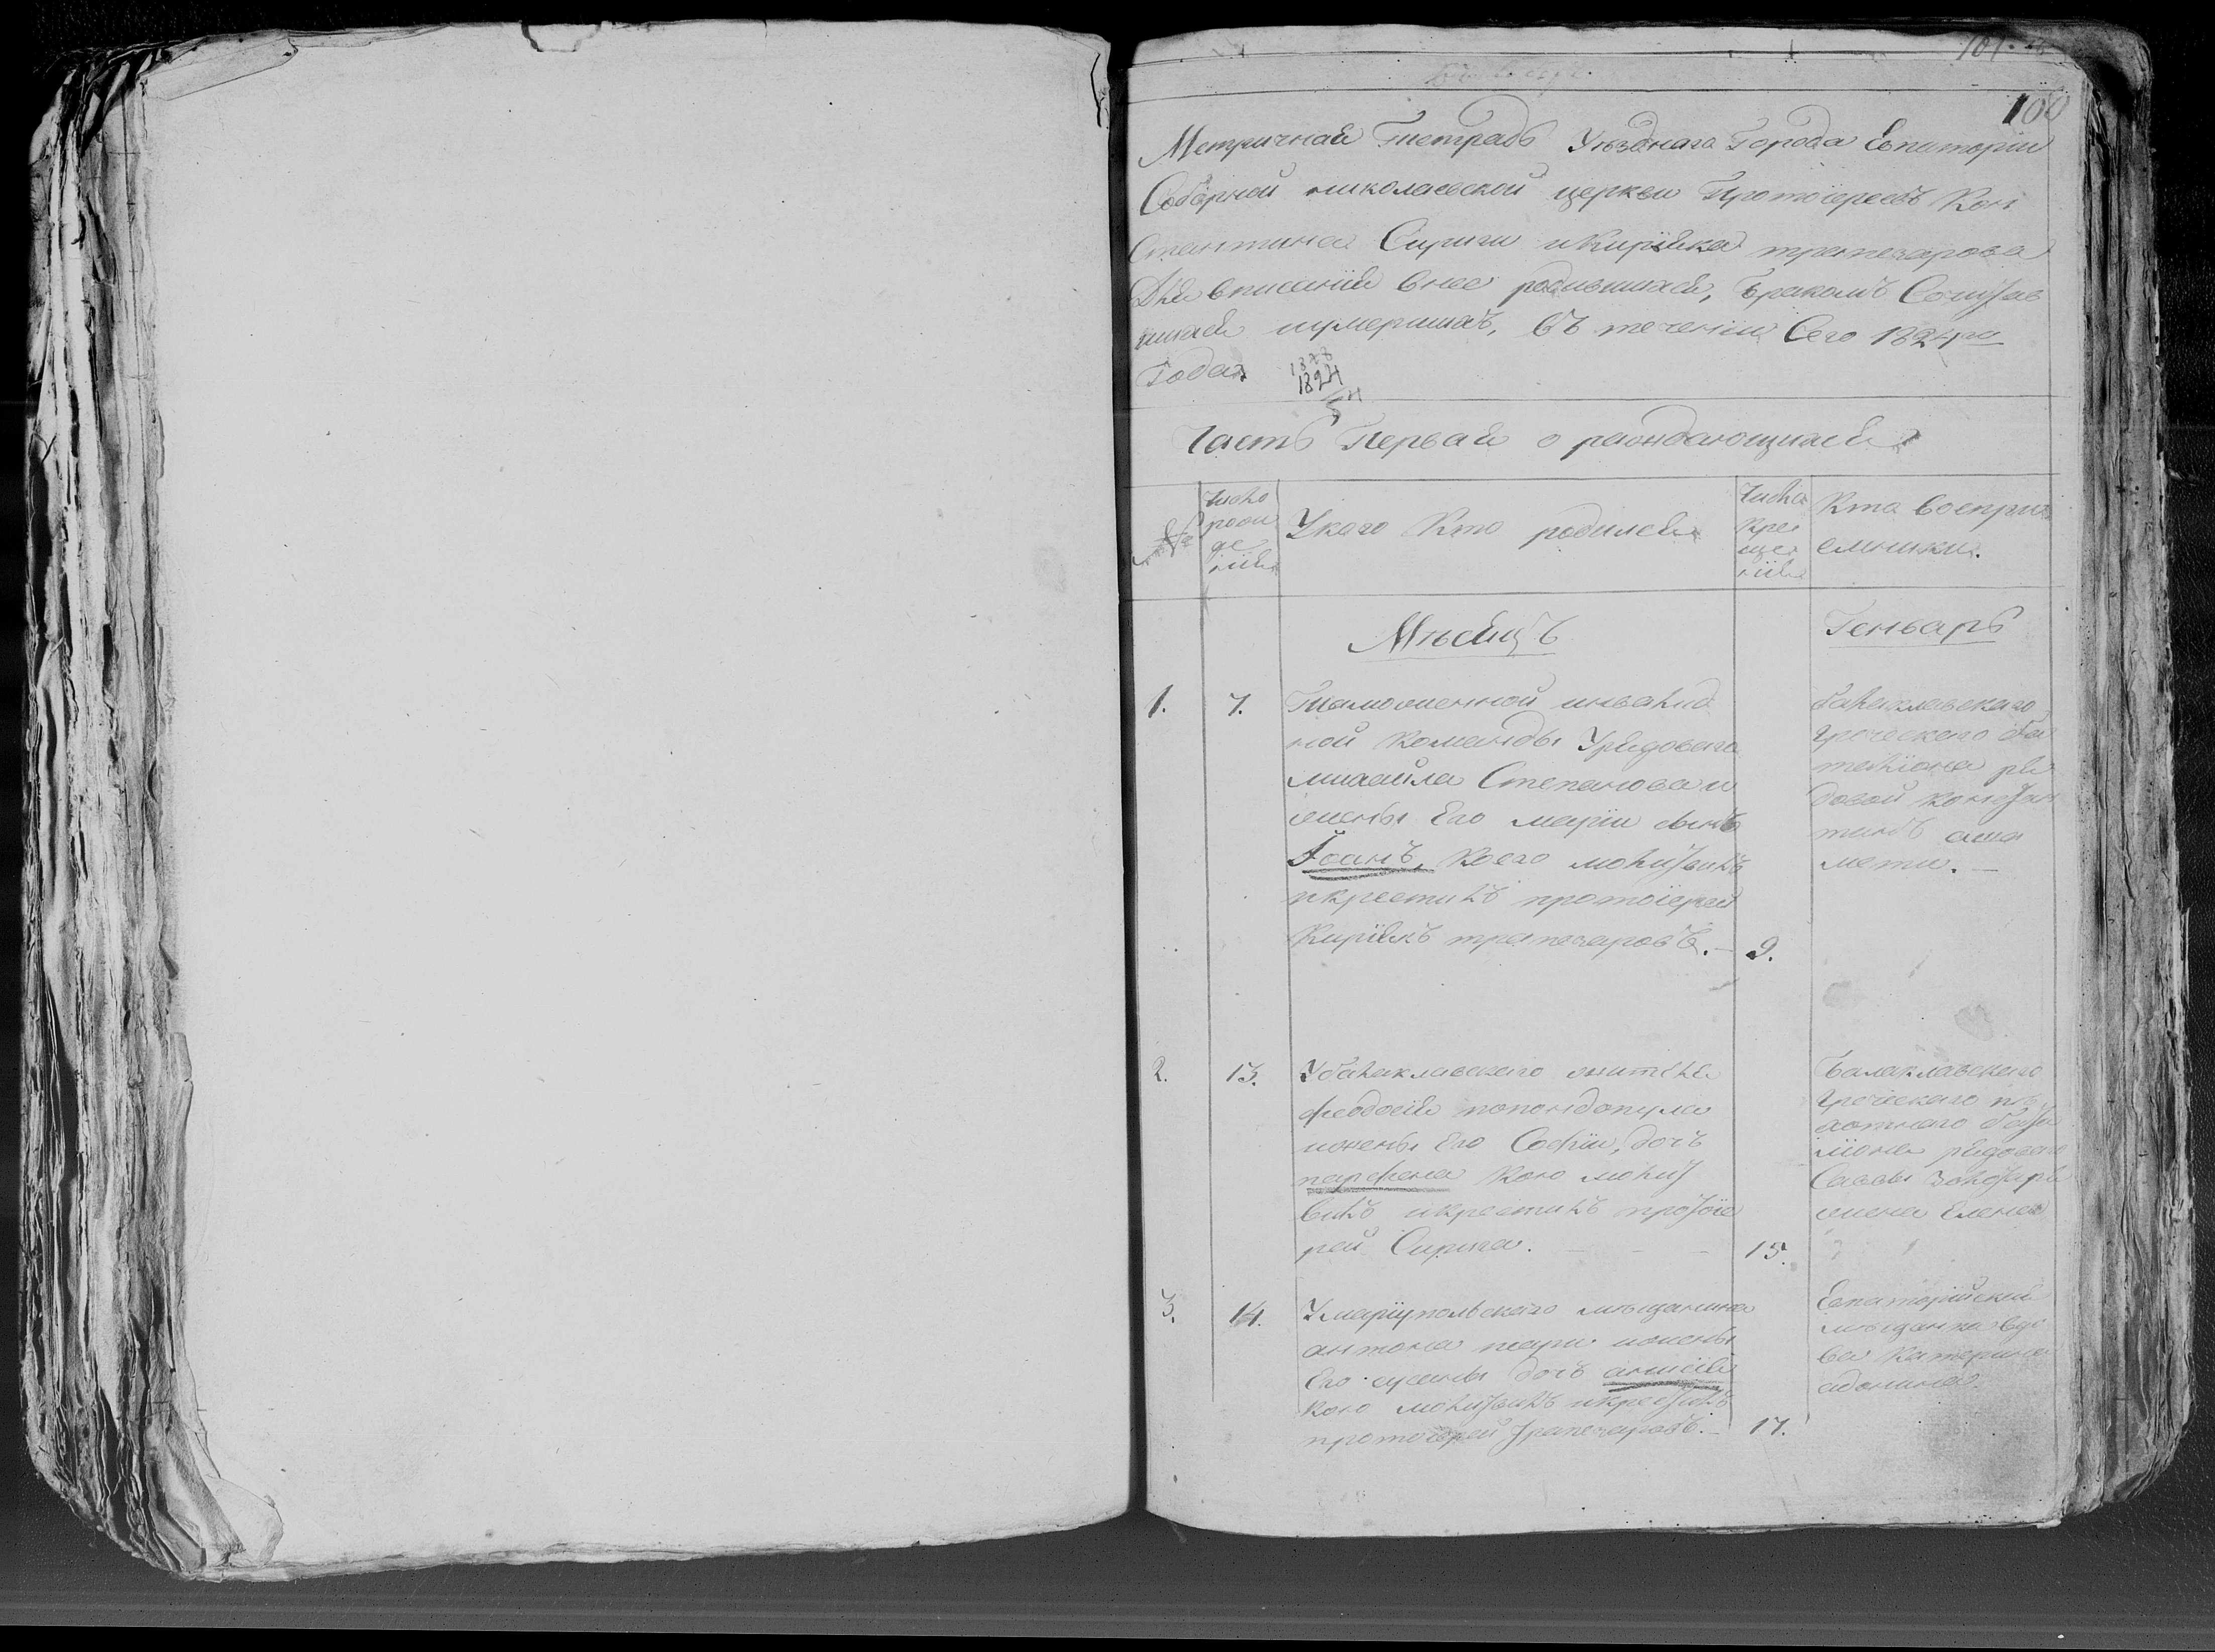 100
Метричная Тетрадь Уѣзднаго Города Евпаторіи
Соборной николаевской церкви Протоіереевъ Кон
стантина Сириги и Киріяка трапезарова
Для вписанія внее родившихся, бракомъ Сочетав
шихся иумершихъ, въ теченіи Сего 1824го
Года
1824
Часть Первая о раждающихся
№
Число рож де нія
Укаго Кто родился
Числа кре ще нія
Кто Воспри
емники.
Мѣсяцъ
Геньварь
1.
7.
Таможенной инвалид
ной команды Урядоваго
михаила Степанова и
жены Его маріи сынъ
Іоанъ, Коего молитвилъ
икрестилъ протоіерей
Киріякъ трапезаровъ.
9.
балаклавскаго
греческаго ба
таліона ря
довой констан
тинъ
мети.
2.
13.
Убалаклавскаго жителя
феодосія попондопула
ижены Его Софіи, дочь
парфена кою молит
вилъ икрестилъ протоіе
рей Сирига.
15.
балаклавскаго
греческаго пѣ
хотнаго бата
ліона рядоваго
Саввы
жена Елена
3.
14.
Умаріупольскаго мѣщанина
антона ижены
Его сусаны дочь анисія
кою молитвилъ икрестилъ
протоіерей трапезаровъ.
17.
Евпаторійская
мѣщанка вдо
ва Катерина